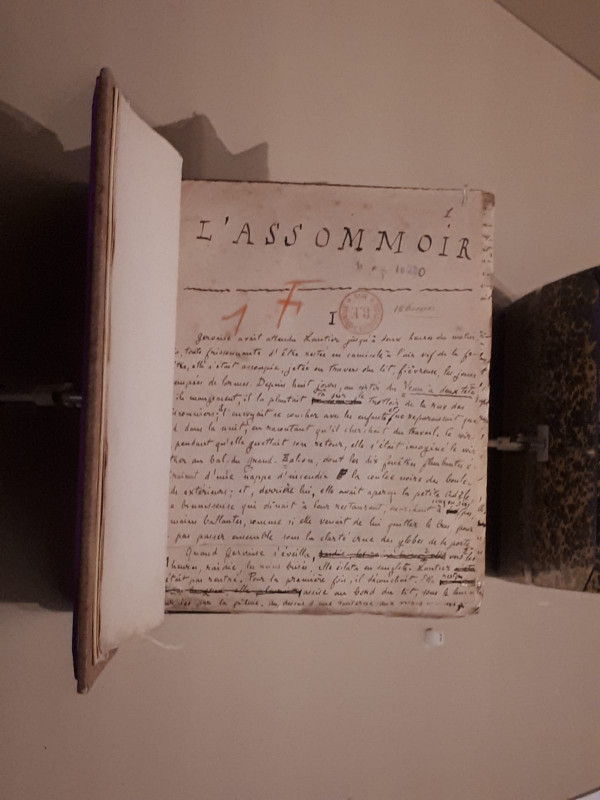 1
L'ASSOMMOIR
1 F
I
Gervaise avait attendu Lantier jusqu'à deux heures du matin.
toute frissonnante d'être restée en camisole à l'air vif de la fe-
elle s'était assoupie, jetée en travers du lit, fiévreuse, les joues
de larmes. Depuis huit jours, au sortir du Veau à deux têtes
ils mangeaient, il la plantait sur le trottoir de la rue des
il envoyait se coucher avec les enfants et ne reparaissait que
d dans la nuit, en racontant qu'il cherchait du travail. Ce soir,
pendant qu'elle guettait son retour, elle s'était imaginé le voir
au bal du Grand-Balcon, dont les dix fenêtres flambantes é-
d'une nappe d'incendie la coulée noire des boule-
extérieurs; et, derrière lui, elle avait aperçu la petite Adèle,
brunisseuse qui dînait à leur restaurant, marchant à
mains ballantes, comme si elle venait de lui quitter le bras pour
pas passer ensemble sous la clarté crue des globes de la porte.
Quand Gervaise s'éveilla, vers
heures, raidie, les reins brisés, elle éclata en sanglots. Lantier
était pas rentré. Pour la première fois, il découchait. Elle
assise au bord du lit, sous le